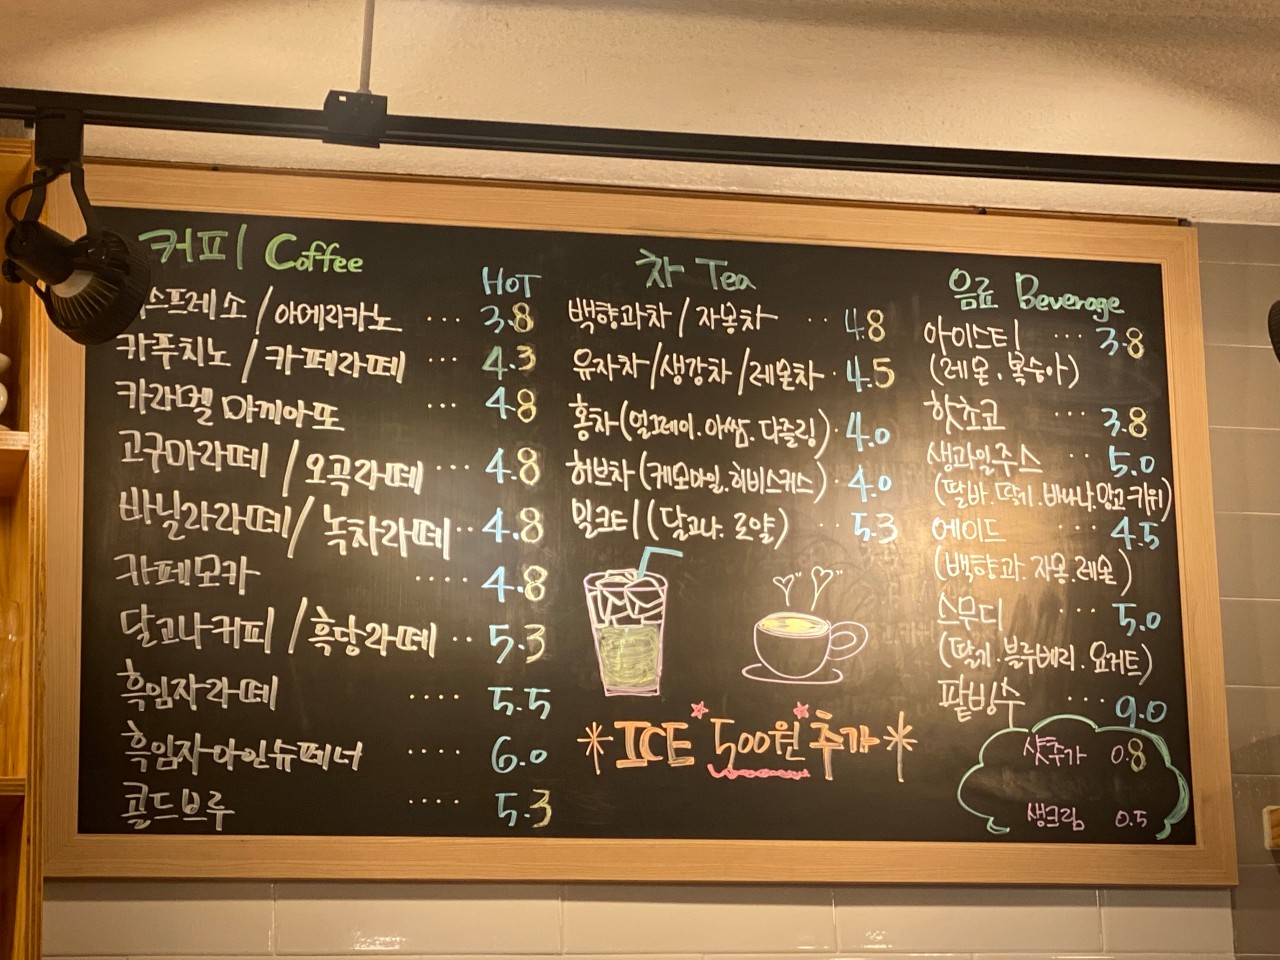 커피 Coffee
HOT
스프레소 / 아메리카노 ... 3.8
카푸치노 / 카페라떼 ... 4.3
카라멜 마끼아또 ... 4.8
고구마라떼 / 오곡라떼 ... 4.8
바닐라라떼 / 녹차라떼 .. 4.8
카페모카 .... 4.8
달고나커피 / 흑당라떼 .. 5.3
흑임자라떼 .... 5.5
흑임자아인슈페너 .... 6.0
콜드브루 .... 5.3
차 Tea
백향과차 / 자몽차 .. 4.8
유자차 / 생강차 / 레몬차 . 4.5
홍차 (얼그레이. 아쌈. 다즐링) . 4.0
허브차 (케모마일. 히비스커스) . 4.0
밀크티 (달고나. 로얄) .. 5.3
*ICE 500원 추가*
음료 Beverage
아이스티 ... 3.8
(레몬. 복숭아)
핫초코 ... 3.8
생과일주스 .. 5.0
(딸바. 딸기. 바나나. 망고. 키위)
에이드 4.5
(백향과. 자몽. 레몬)
스무디 ... 5.0
(딸기. 블루베리. 요거트)
팥빙수 ... 9.0
샷추가 0.8
생크림 0.5